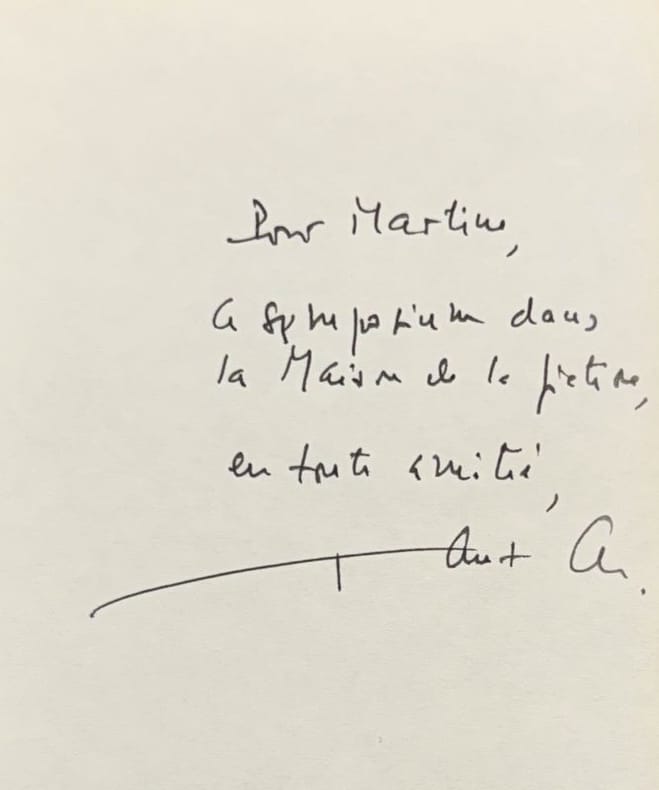 Pour Martine,
ce symposium dans
la Maison de la
en toute amitié,